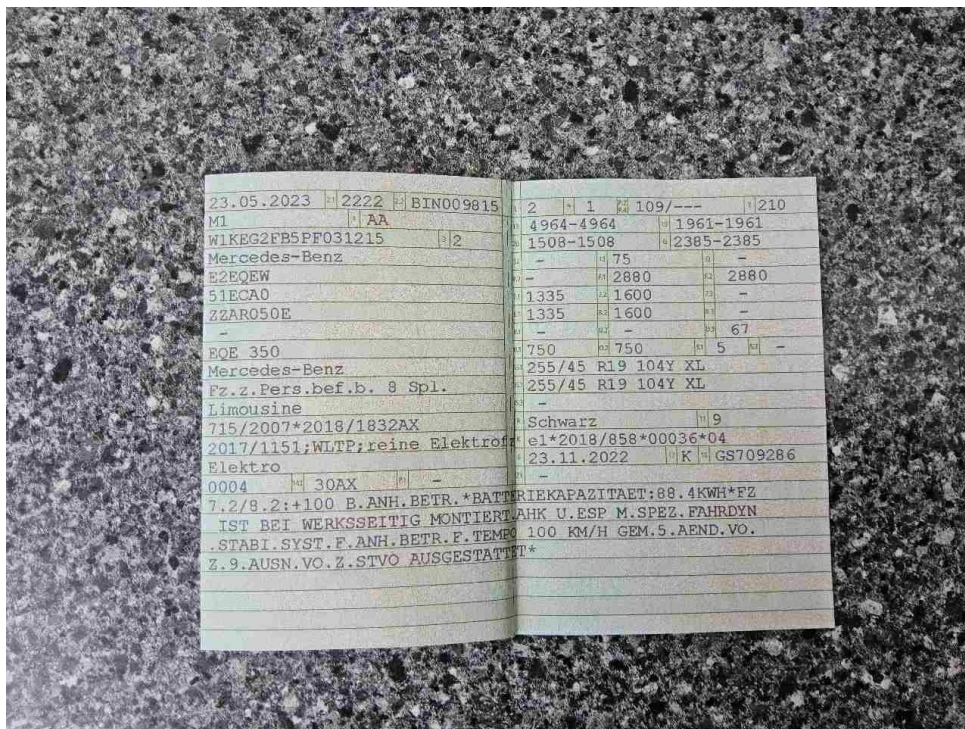 23.05.2023 2222 BIN009815
M1 AA
W1KEG2FB5PF031215 2
Mercedes-Benz
E2EQEW
51ECA0
ZZAR050E
-
EQE 350
Mercedes-Benz
Fz.z.Pers.bef.b. 8 Spl.
Limousine
715/2007*2018/1832AX
2017/1151;WLTP;reine Elektrof
Elektro
0004 30AX -
2 1 109/--- 210
4964-4964 1961-1961
1508-1508 2385-2385
- 75 -
- 2880 2880
1335 1600 -
1335 1600 -
- - 67
750 750 5 -
255/45 R19 104Y XL
255/45 R19 104Y XL
-
Schwarz 9
e1*2018/858*00036*04
23.11.2022 K GS709286
-
7.2/8.2:+100 B.ANH.BETR.*BATTERIEKAPAZITAET:88.4KWH*FZ
IST BEI WERKSSEITIG MONTIERT.AHK U.ESP M.SPEZ.FAHRDYN
.STABI.SYST.F.ANH.BETR.F.TEMPO 100 KM/H GEM.5.AEND.VO.
Z.9.AUSN.VO.Z.STVO AUSGESTATTET*